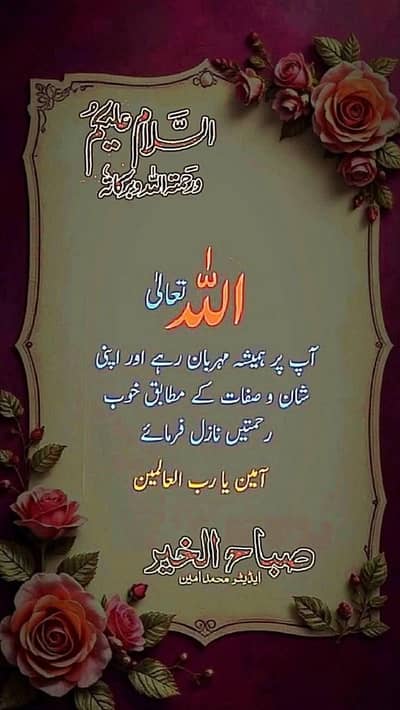 السلام علیکم
ورحمتہ اللہ وبرکاتہ
اللہ تعالیٰ
آپ پر ہمیشہ مہربان رہے اور اپنی
شان و صفات کے مطابق خوب
رحمتیں نازل فرمائے
آمین یا رب العالمین
صباح الخیر
ایڈیٹر محمد امین